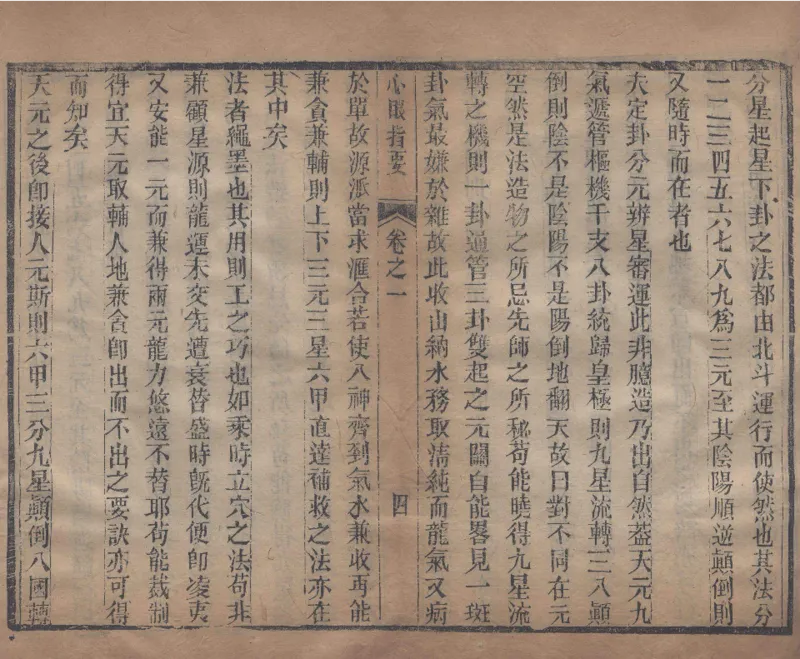 分星起星下卦之法都由北斗運行而使然也其法分
一二三四五六七八九為三元至其陰陽順逆顛倒則
又隨時而在者也
夫定卦分元辨星審運此非臆造乃出自然葢天元九
氣遞管樞機干支八卦統歸皇極則九星流轉三八顛
倒則陰不是陰陽不是陽倒地翻天故曰對不同在元
空然是法造物之所忌先師之所秘苟能曉得九星流
轉之機則一卦通管三卦雙起之元關自能畧見一斑
卦氣最嫌於雜故此收山納水務取清純而龍氣又病
心眼指要
卷之一
四
於單故源派當求滙合若使八神齊到氣水兼收再能
兼貪兼輔則上下三元三星六甲直達補救之法亦在
其中矣
法者繩墨也其用則工之巧也如乘時立穴之法苟非
兼顧星源則龍運未交先遭衰替盛時既代便卽凌夷
又安能一元而兼得兩元龍力悠遠不替耶苟能裁制
得宜天元取輔人地兼貪卽出而不出之要訣亦可得
而知矣
天元之後卽接人元斯則六甲三分九星顛倒八國轉